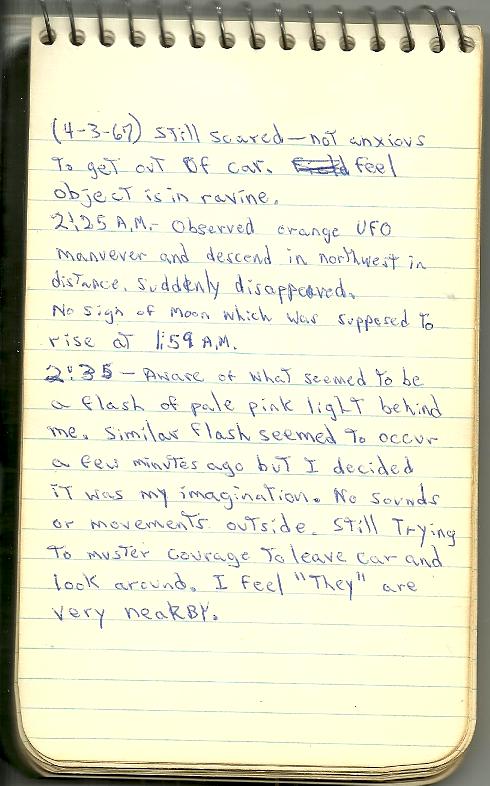 (4-3-67) still scared—not anxious
to get out of car. feel
object is in ravine.
2:25 A.M.- Observed orange UFO
manuever and descend in northwest in
distance. Suddenly disappeared.
No sign of moon which was supposed to
rise at 1:59 A.M.
2:35 - Aware of what seemed to be
a flash of pale pink light behind
me. Similar flash seemed to occur
a few minutes ago but I decided
it was my imagination. No sounds
or movements outside. Still trying
to muster courage to leave car and
look around. I feel "They" are
very nearby.